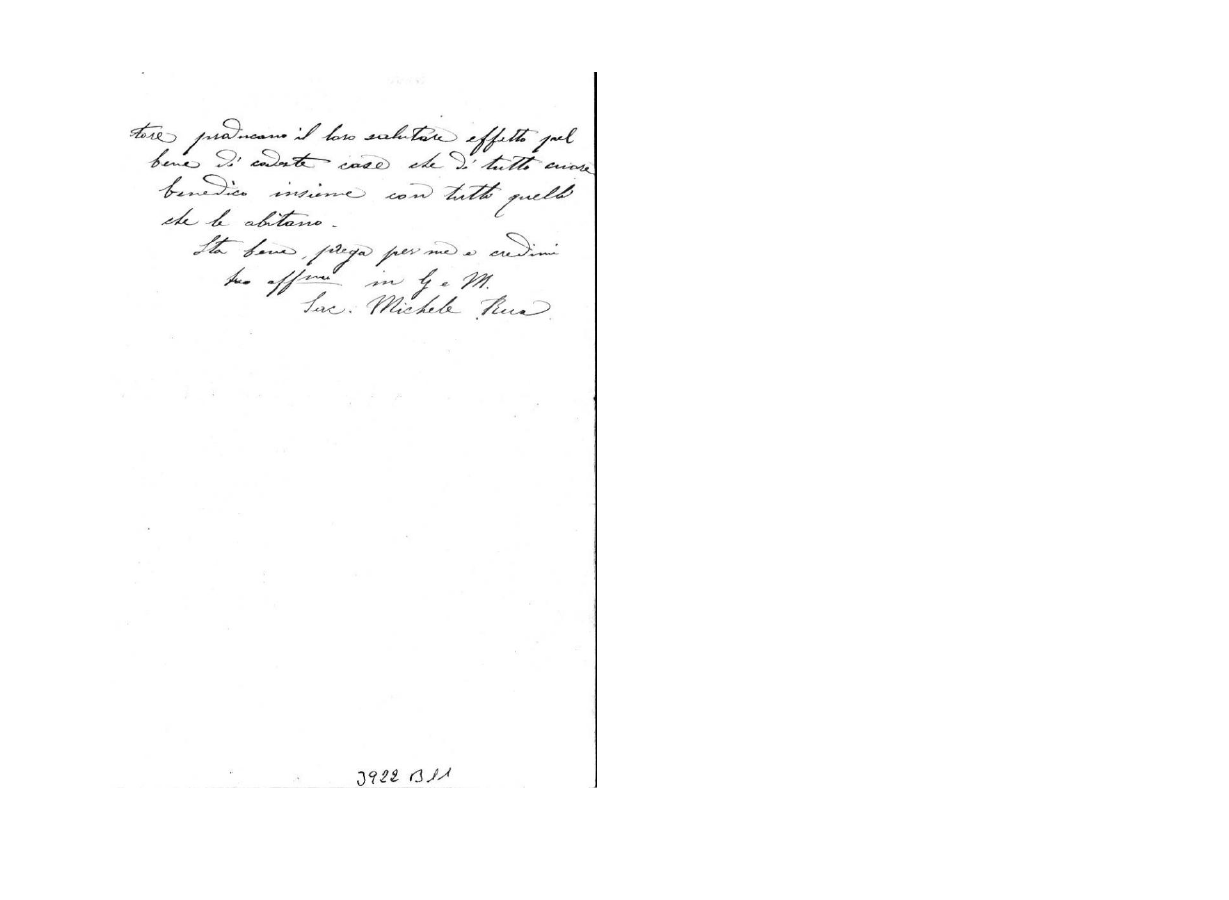 tore producano il loro salutare effetto pel
bene di codeste case che di tutto cuore
benedico insieme con tutti quelli
che le abitano.
Sta bene, prega per me e credimi
tuo affmo in G e M.
Sac. Michele Rua
3922 B11